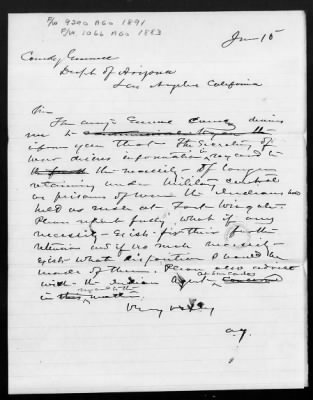 F/W 9290 AGO 1891
F/W 1066 AGO 1883
Jan 15
Comd'g General
Dep't of Arizona
Los Angeles California
Sir
The Major General Comd'g desires
me to
inform you that the Secretary of
War desires information in regard to
the necessity of longer
retaining under military control
as prisoners of war the Indians held
as such at Fort Wingate.
Please report fully, what if any
necessity exists for their further
detention and if no such necessity
exists what disposition should be
made of them. Please also advise
with the Indian Agent
in this matter
regard to the
Very resp'y
A.G.